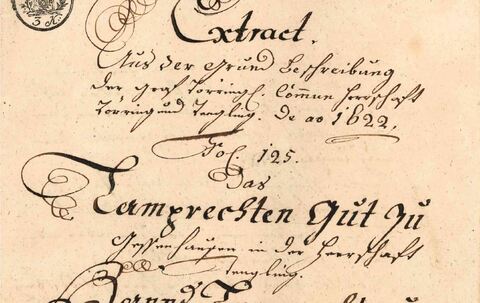 3 K.
Extract.
Aus der Grund Beschreibung
der Graf Törringl. Commun Herrschaft
Törring und Tengling. De ao 1622.
Fol. 125.
Das
Lamprechten Gut Zu
Gessenhausen in der Herrschaft
Tengling.